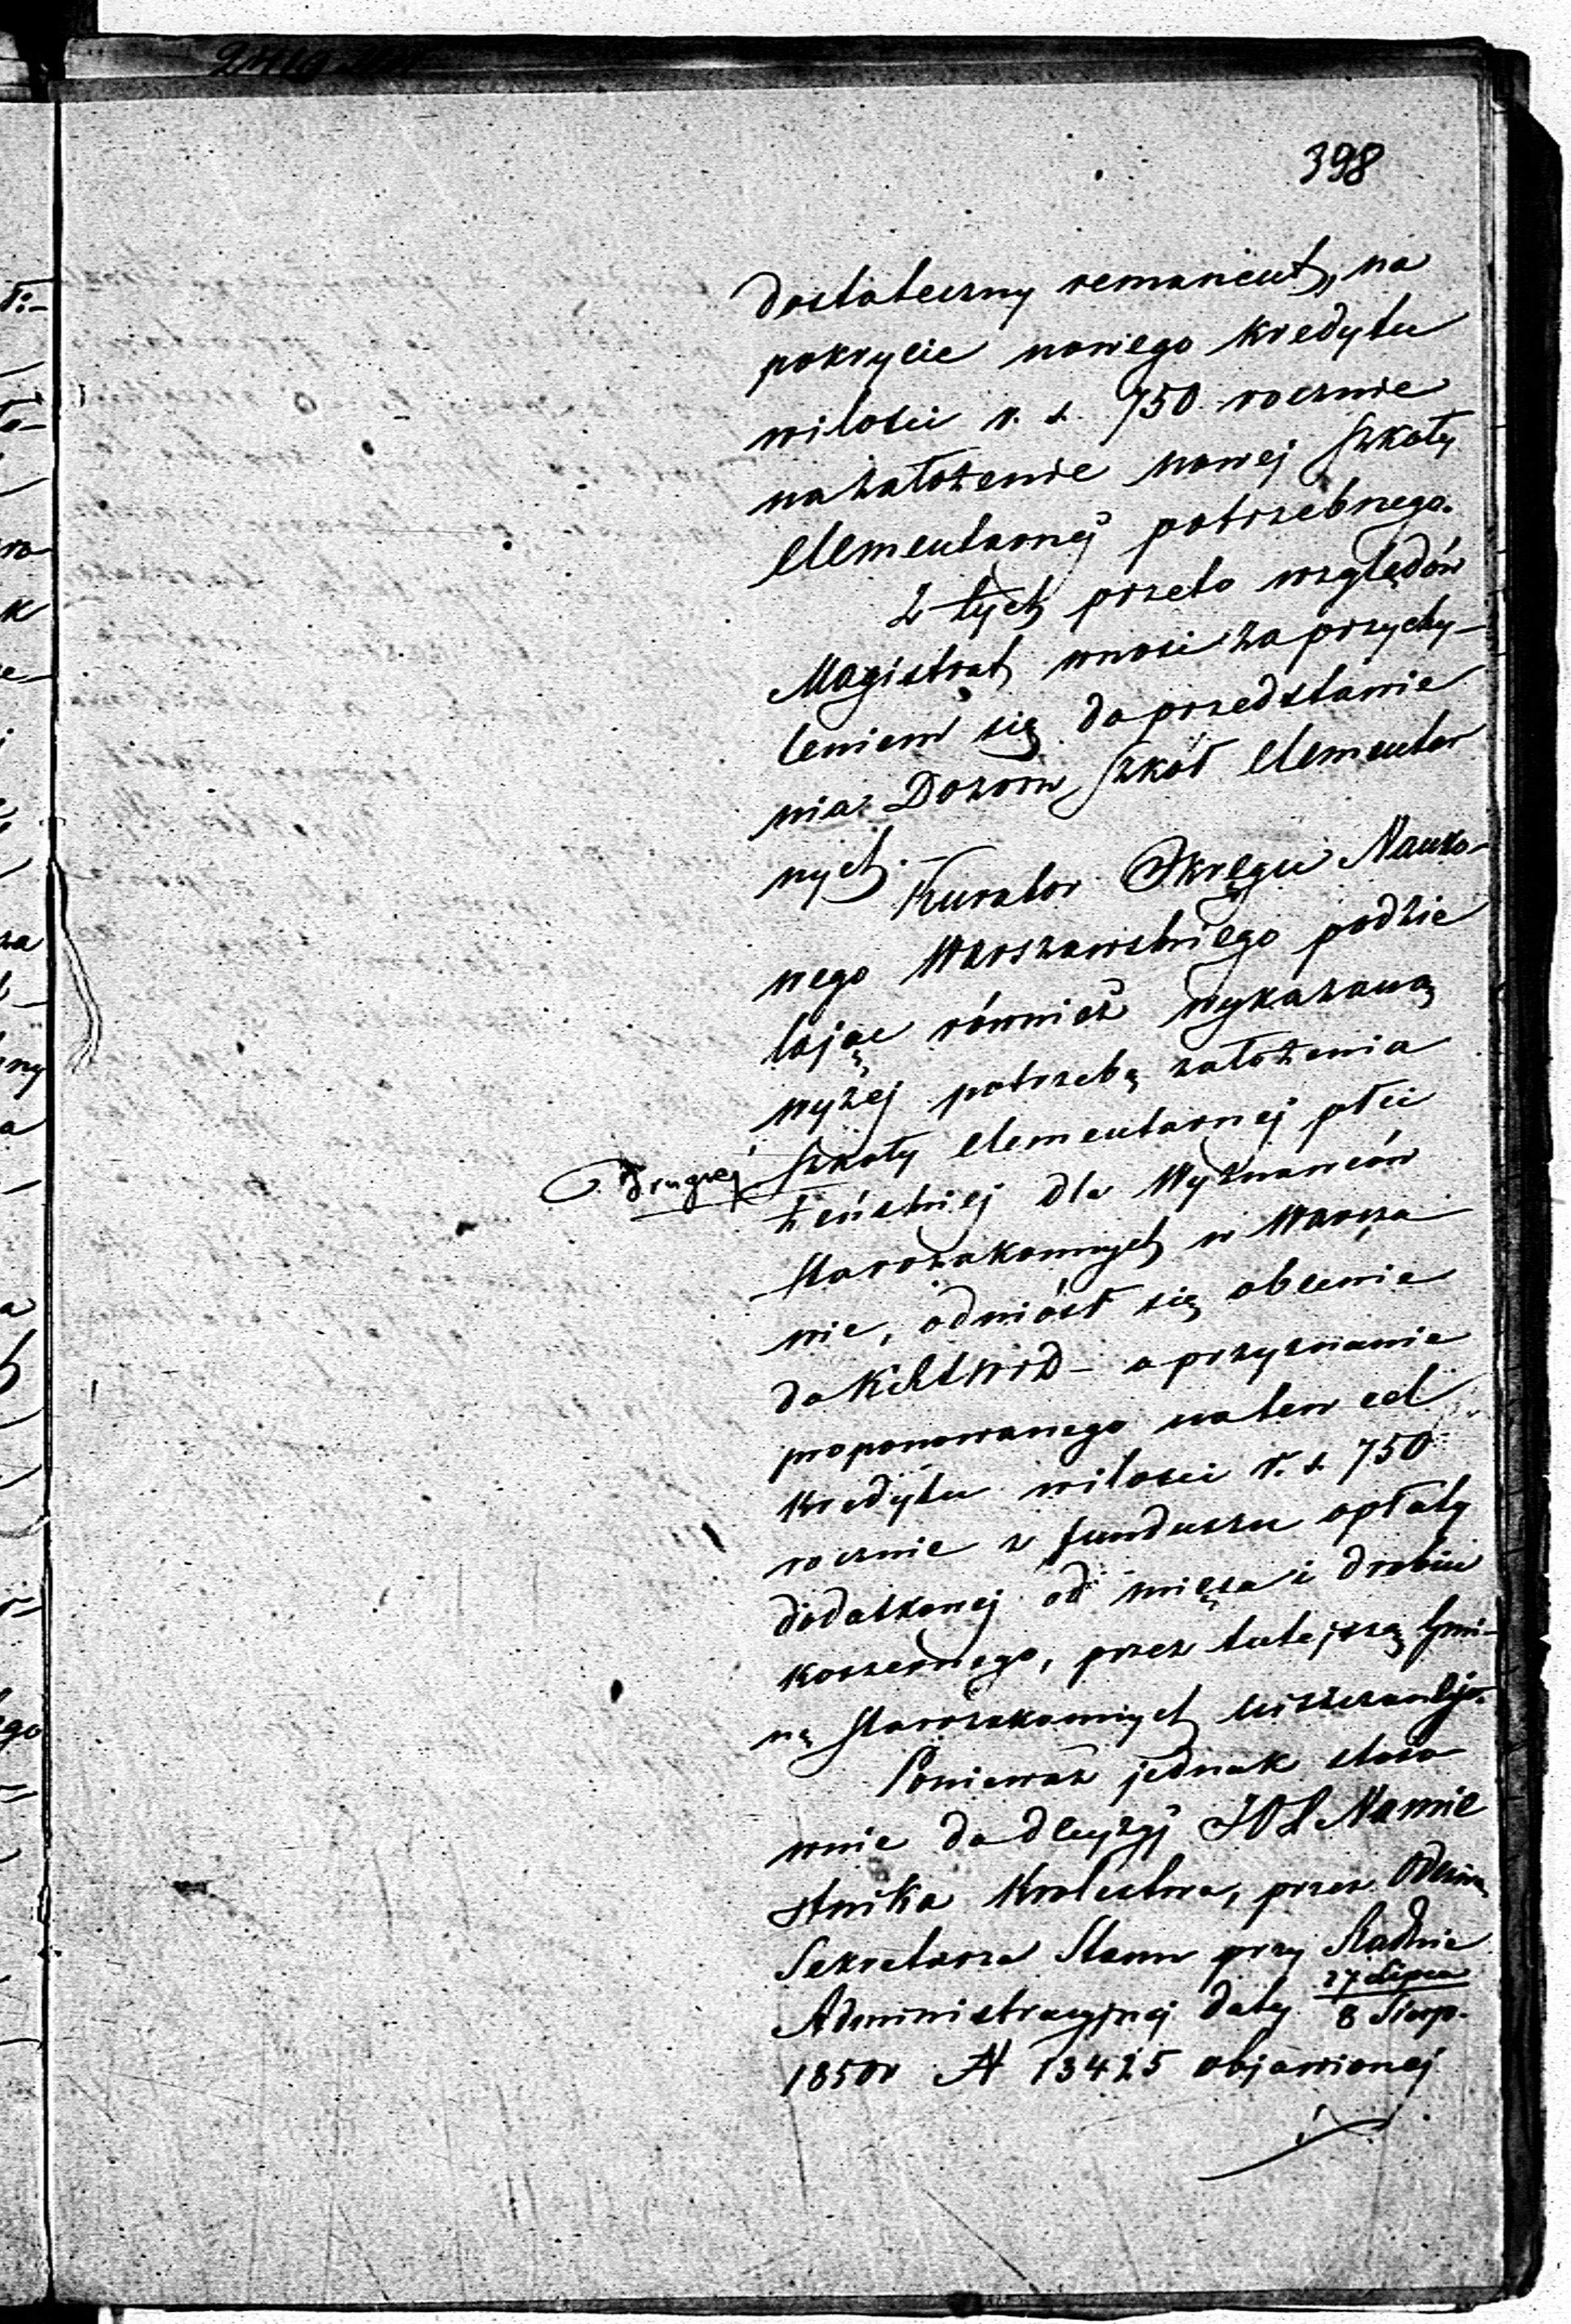 398
dostateczny remanent, na
pokrycie nowego kredytu
wilości r. s. 750 rocznie
na założenie nowej szkoły
elementarnej potrzebnego.
Z tych przeto względów
Magistrat wnosi za przychy-
leniem się do przedstawie
nia Dozoru Szkół elementar
nych. —
Kurator Okręgu Nauko-
wego Warszawskiego podzie
lając również wykazaną
wyżej potrzebę założenia
drugiej szkoły elementarnej płci
żeńskiej dla Wyznawców
Starozakonnych w Warsza
wie, odniósł się obecnie
do KRSWiD - o przyznanie
proponowanego na ten cel
kredytu wilości r. s. 750
rocznie z funduszu opłaty
dodatkowej od mięsa i drobiu
koszernego, przez tutejszą Gmi-
nę Starozakonnych uiszczanej.
Ponieważ jednak stoso
wnie do decyzyj JO X Namie
stnika Królestwa, przez Odezwę
Sekretarza Stanu przy Radzie
Administracyjnej daty 27 Lipca
8 Sierp.
1850 r N 13425 objawionej